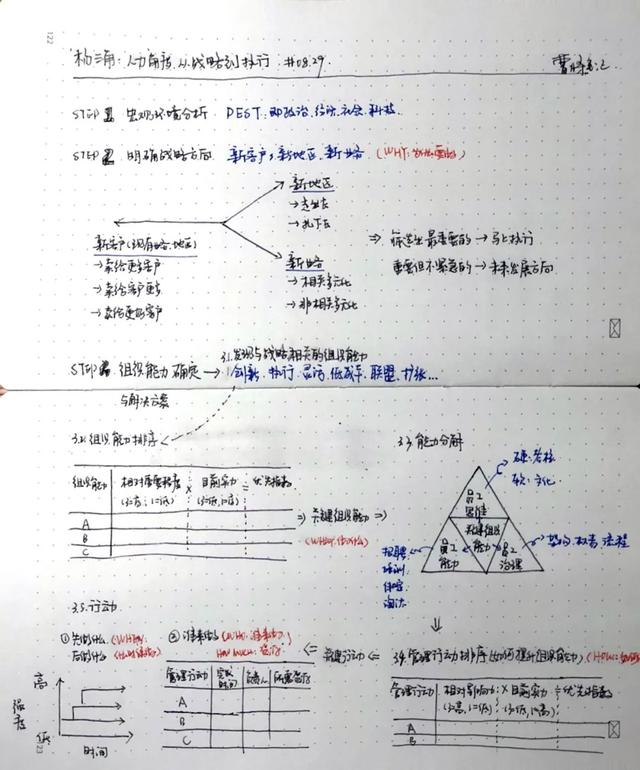 122
杨三角：人力角度，从战略到执行 #08.29.
STEP 1 宏观环境分析 PEST：即政治、经济、社会、科技
STEP 2 明确战略方向 新客户、新地区、新业务 (WHY：为什么要做)
新地区
→走出去
→扎下去
新客户(现有业务、地区)
→卖给更多客户
→卖给客户更多
→卖给更好客户
新业务
→相关多元化
→非相关多元化
⇒ 筛选出最重要的→马上执行
重要但不紧急的→未来发展方向
3.1.发现与战略相关的组织能力
STEP 3 组织能力确定 → 创新、执行、灵活、低成本、联盟、扩张...
与解决方案
3.2.组织能力排序
组织能力 相对重要程度 × 目前实力 = 优先指标
(3=高；1=低) (3=低，1=高)
A
B
C
⇒ 关键组织能力 ⇒
3.3.能力分解
硬：考核
软：文化
员工思维
关键组织能力
员工能力
员工治理
招聘
培训
淘汰
权责、流程
⇓
3.4.管理行动排序(如何提升组织能力)
管理行动 相对影响力 × 目前实力 = 优先指标
(3=高，1=低) (3=低，1=高)
A
B
⇐ 关键行动 ⇐
3.5.行动
① 先做什么
后做什么
高
强度
低
时间
② 谁来做
HOW MUCH：
管理行动 完成时间 负责人 所需资源
A
B
C
123